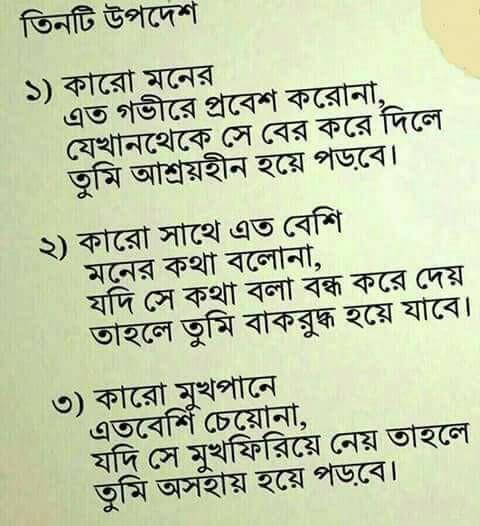 তিনটি উপদেশ
১) কারো মনের
এত গভীরে প্রবেশ করোনা,
যেখানথেকে সে বের করে দিলে
তুমি আশ্রয়হীন হয়ে পড়বে।
২) কারো সাথে এত বেশি
মনের কথা বলোনা,
যদি সে কথা বলা বন্ধ করে দেয়
তাহলে তুমি বাকরুদ্ধ হয়ে যাবে।
৩) কারো মুখপানে
এতবেশি চেয়োনা,
যদি সে মুখফিরিয়ে নেয় তাহলে
তুমি অসহায় হয়ে পড়বে।